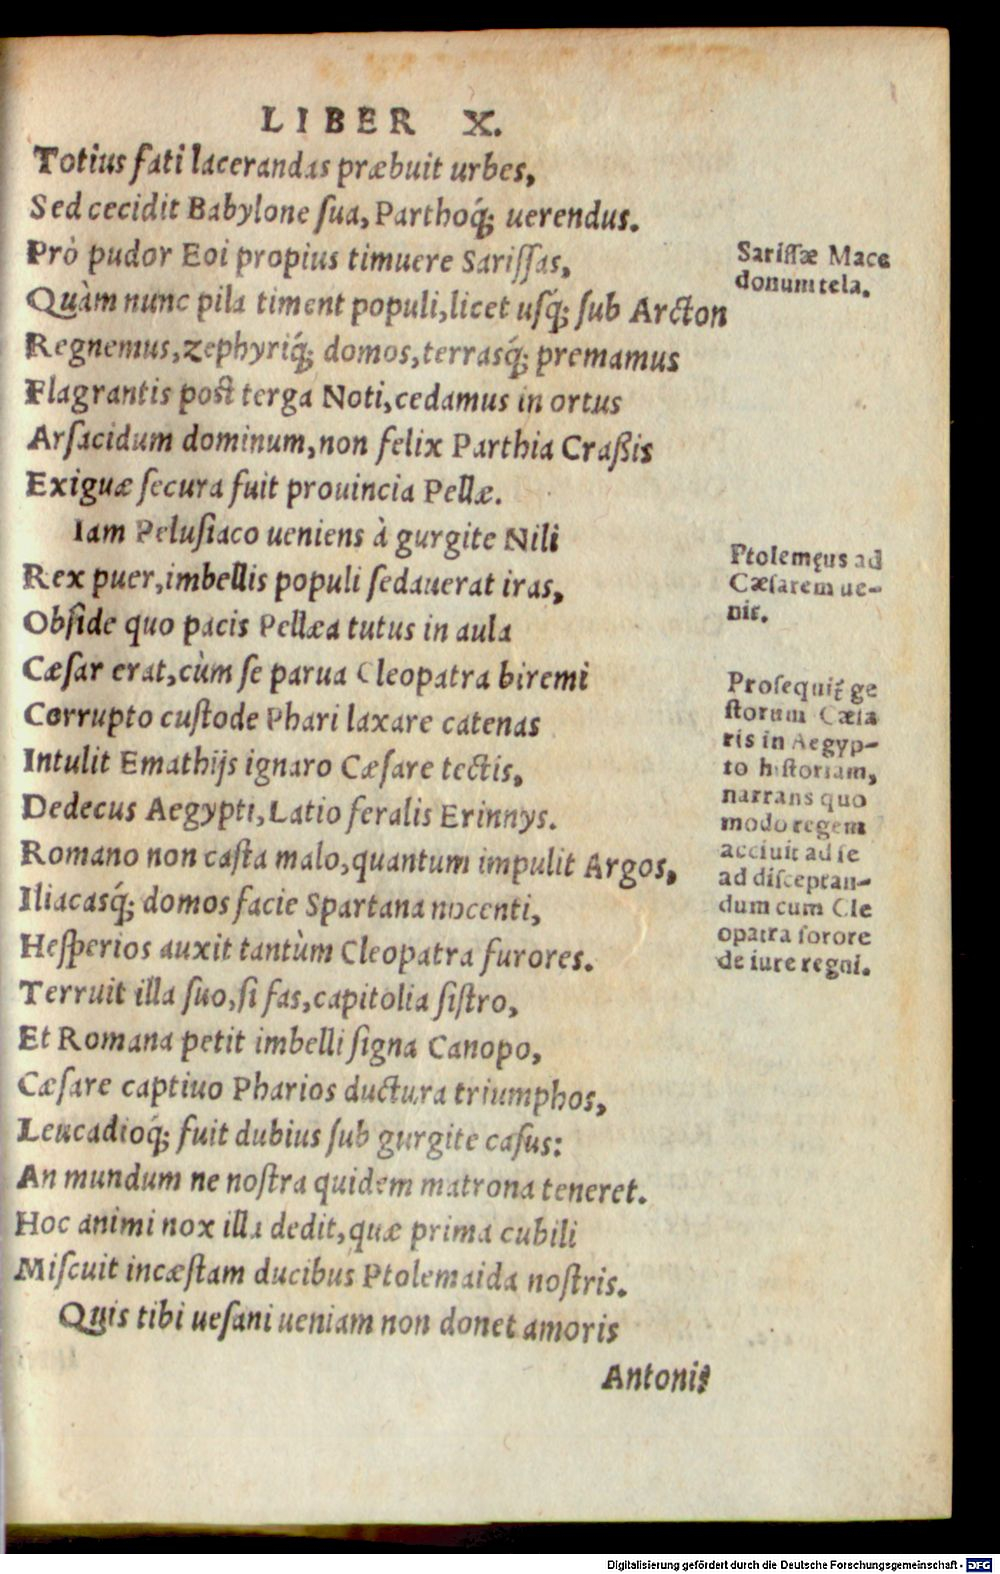 LIBER X.
Totius fati lacerandas præbuit urbes,
Sed cecidit Babylone sua, Parthoq́; uerendus.
Prò pudor Eoi propius timuere Sarissas,
Quàm nunc pila timent populi, licet usq́; sub Arcton
Regnemus, zephyriq́; domos, terrasq́; premamus
Flagrantis post terga Noti, cedamus in ortus
Arsacidum dominum, non felix Parthia Craßis
Exiguæ secura fuit prouincia Pellæ.
Iam Pelusiaco ueniens à gurgite Nili
Rex puer, imbellis populi sedauerat iras,
Obside quo pacis Pellæa tutus in aula
Cæsar erat, cùm se parua Cleopatra biremi
Corrupto custode Phari laxare catenas
Intulit Emathijs ignaro Cæsare tectis,
Dedecus Aegypti, Latio feralis Erinnys.
Romano non casta malo, quantum impulit Argos,
Iliacasq́; domos facie Spartana nocenti,
Hesperios auxit tantùm Cleopatra furores.
Terruit illa suo, si fas, capitolia sistro,
Et Romana petit imbelli signa Canopo,
Cæsare captiuo Pharios ductura triumphos,
Leucadioq́; fuit dubius sub gurgite casus:
An mundum ne nostra quidem matrona teneret.
Hoc animi nox illa dedit, quæ prima cubili
Miscuit incæstam ducibus Ptolemaida nostris.
Quis tibi uesani ueniam non donet amoris
Antoni?
Sarissæ Mace
donum tela.
Ptolemęus ad
Cæsarem ue-
nit.
Prosequit̃ ge
storum Cæsa
ris in Aegyp-
to historiam,
narrans quo
modo regem
acciuit ad se
ad disceptan-
dum cum Cle
opatra sorore
de iure regni.
Digitalisierung gefördert durch die Deutsche Forschungsgemeinschaft - DFG